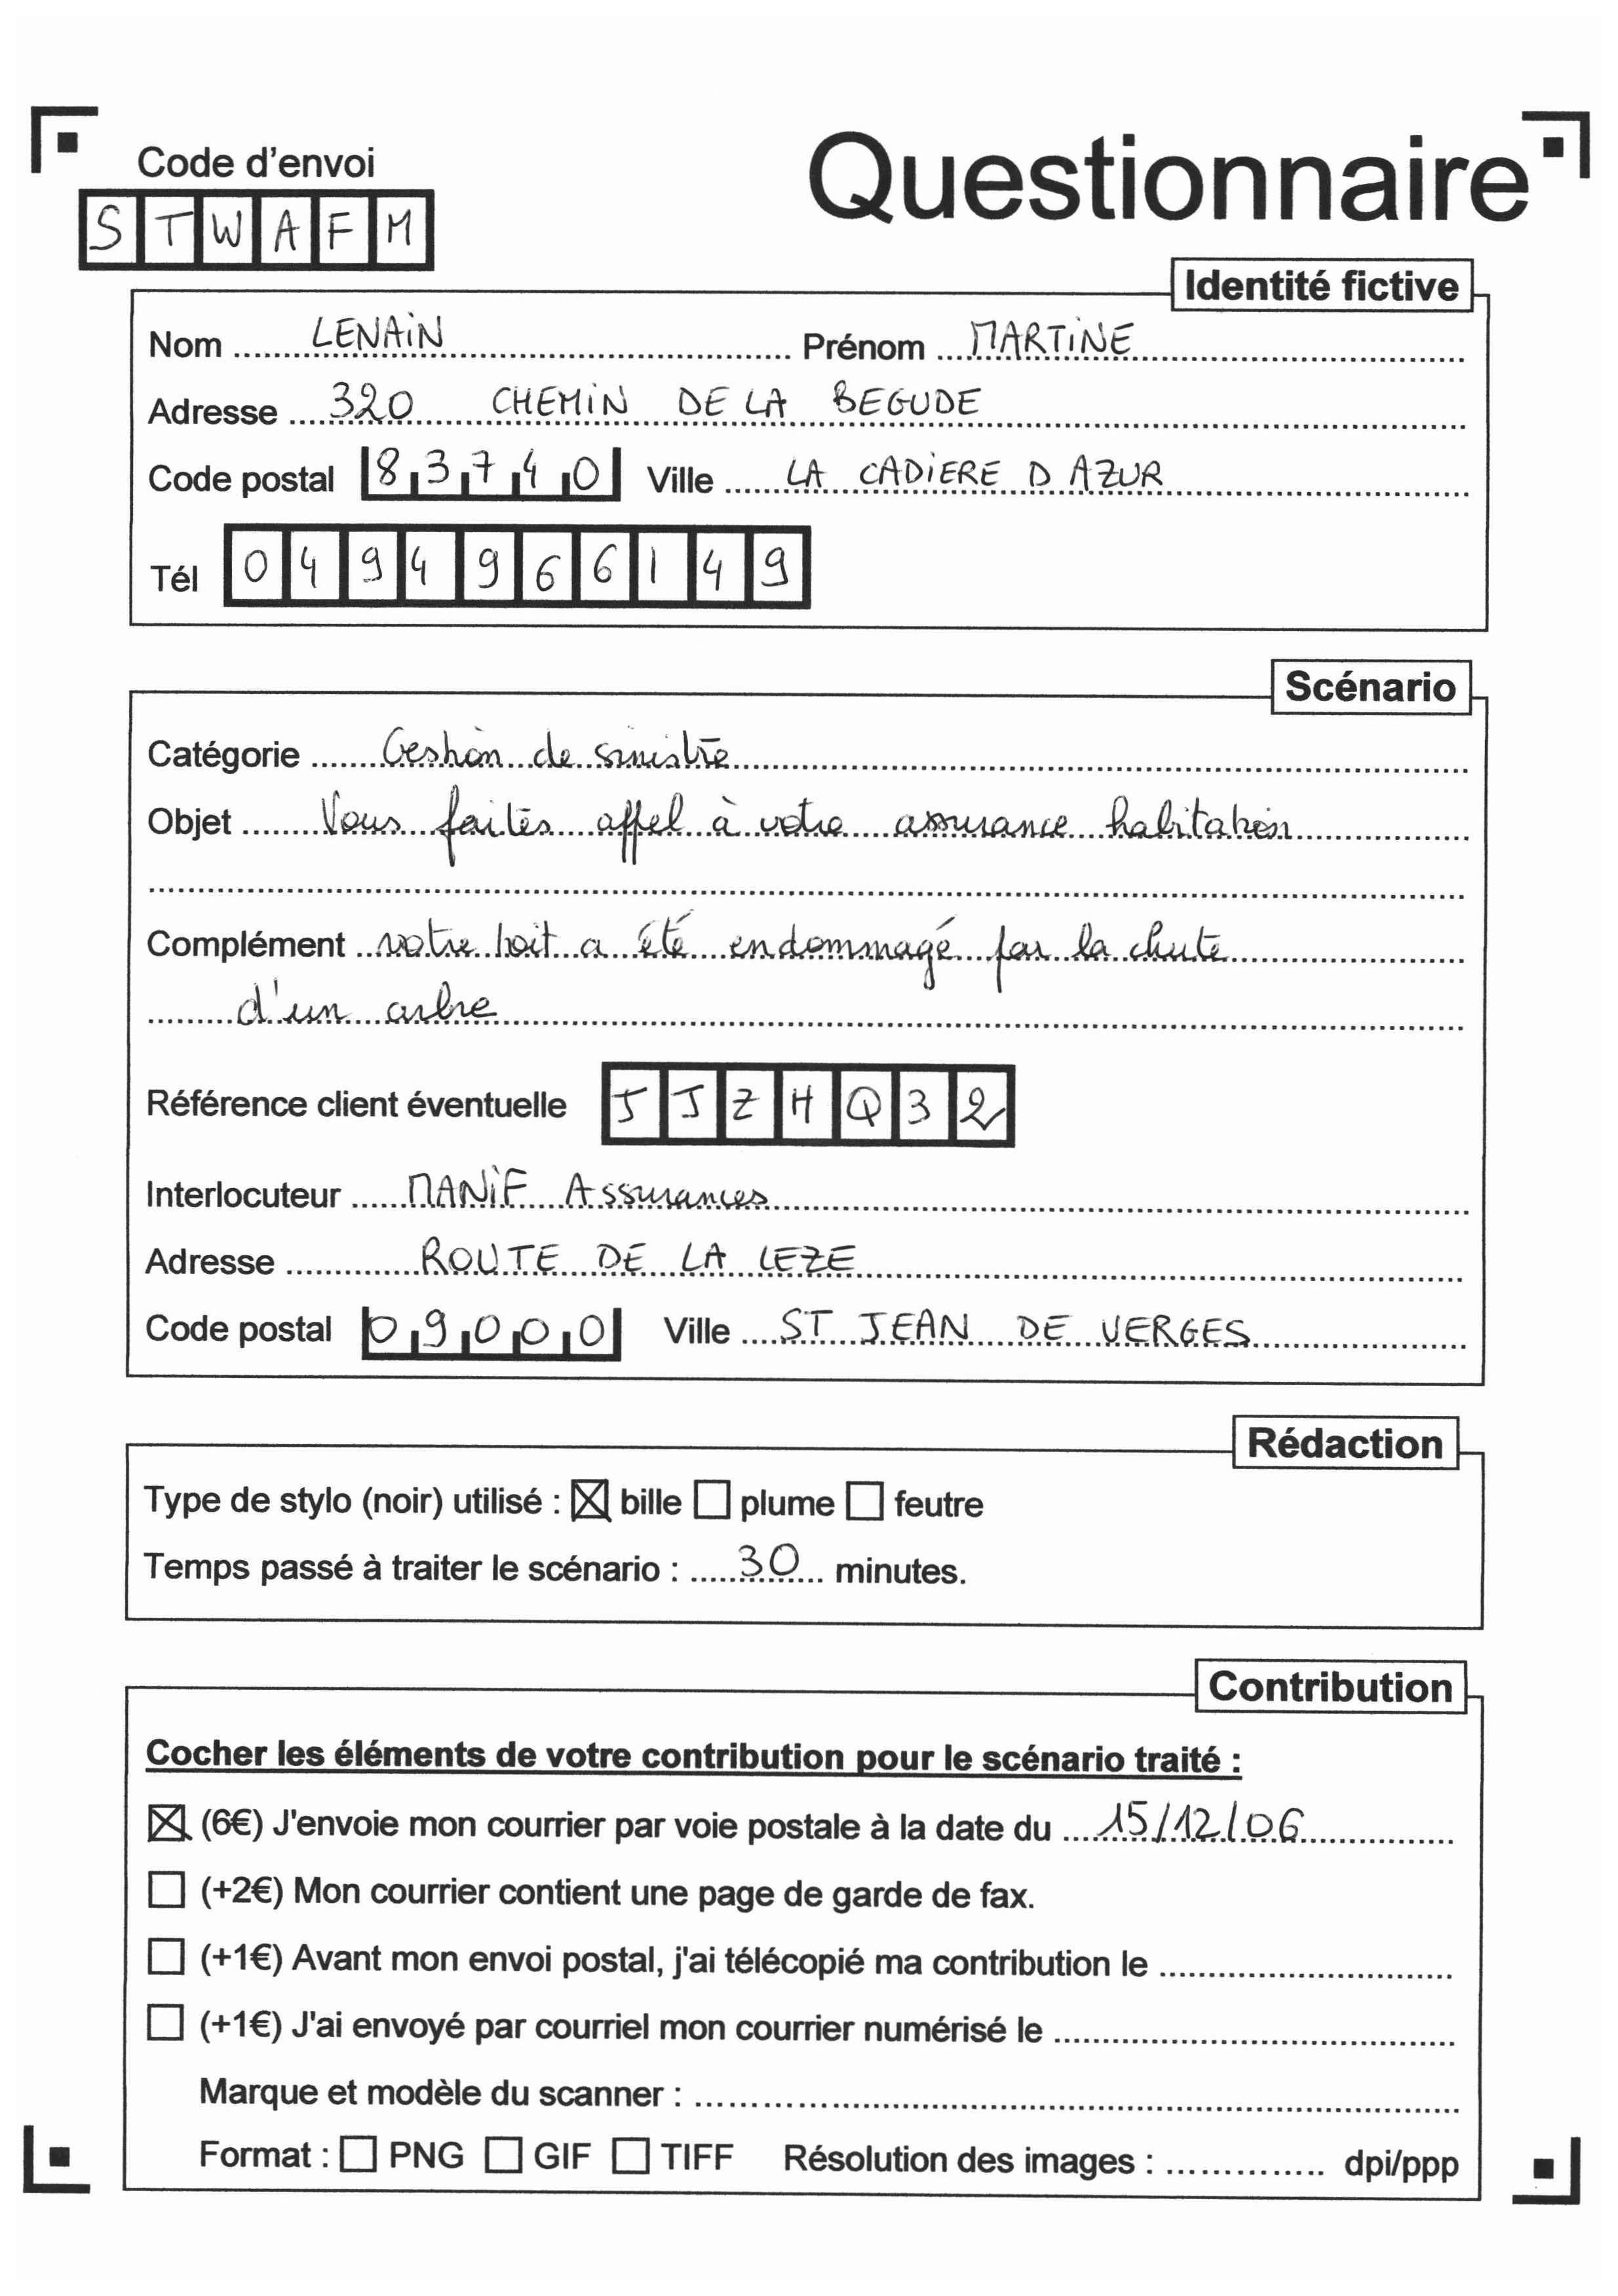 Code d'envoi
Questionnaire
STWAFM
Identité fictive
Nom LENAIN Prénom MARTINE
Adresse 320 CHEMIN DE LA BEGUDE
Code postal 83740 Ville LA CADIERE D AZUR
Tél 0494966149
Scénario
Catégorie Gestion de sinistre
Objet Vous faites appel à votre assurance habitation
Complément votre toit a été endommagé par la chute
d'un arbre
Référence client éventuelle JJZHQ32
Interlocuteur MANIF Assurances
Adresse ROUTE DE LA LEZE
Code postal 09000 Ville ST JEAN DE VERGES
Rédaction
Type de stylo (noir) utilisé : ☒ bille ☐ plume ☐ feutre
Temps passé à traiter le scénario : 30 minutes.
Contribution
Cocher les éléments de votre contribution pour le scénario traité :
☒ (6€) J'envoie mon courrier par voie postale à la date du 15/12/06
☐ (+2€) Mon courrier contient une page de garde de fax.
☐ (+1€) Avant mon envoi postal, j'ai télécopié ma contribution le
☐ (+1€) J'ai envoyé par courriel mon courrier numérisé le
Marque et modèle du scanner :
Format : ☐ PNG ☐ GIF ☐ TIFF Résolution des images : dpi/ppp